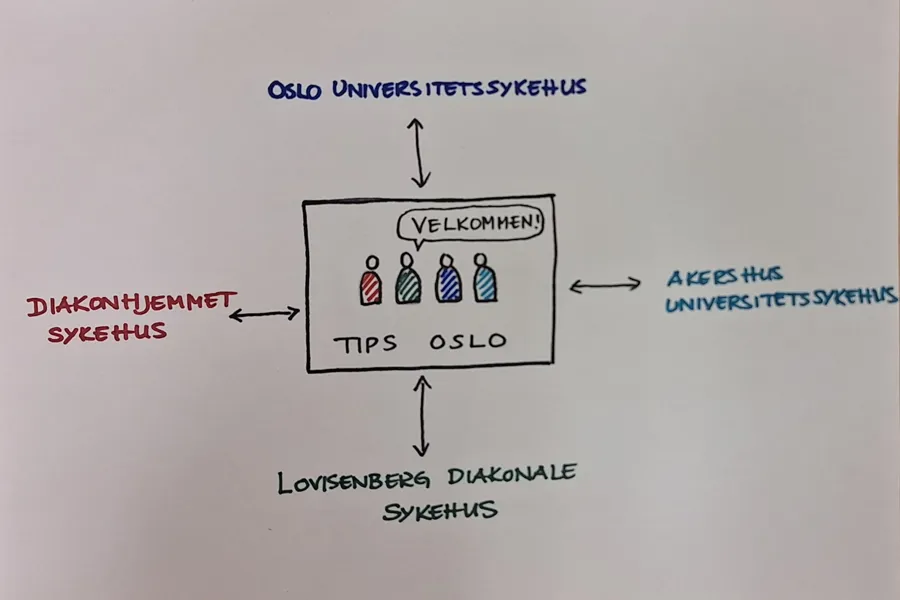 OSLO UNIVERSITETSSYKEHUS
VELKOMMEN!
DIAKONHJEMMET
SYKEHUS
TIPS OSLO
AKERSHUS
UNIVERSITETSSYKEHUS
LOVISENBERG DIAKONALE
SYKEHUS